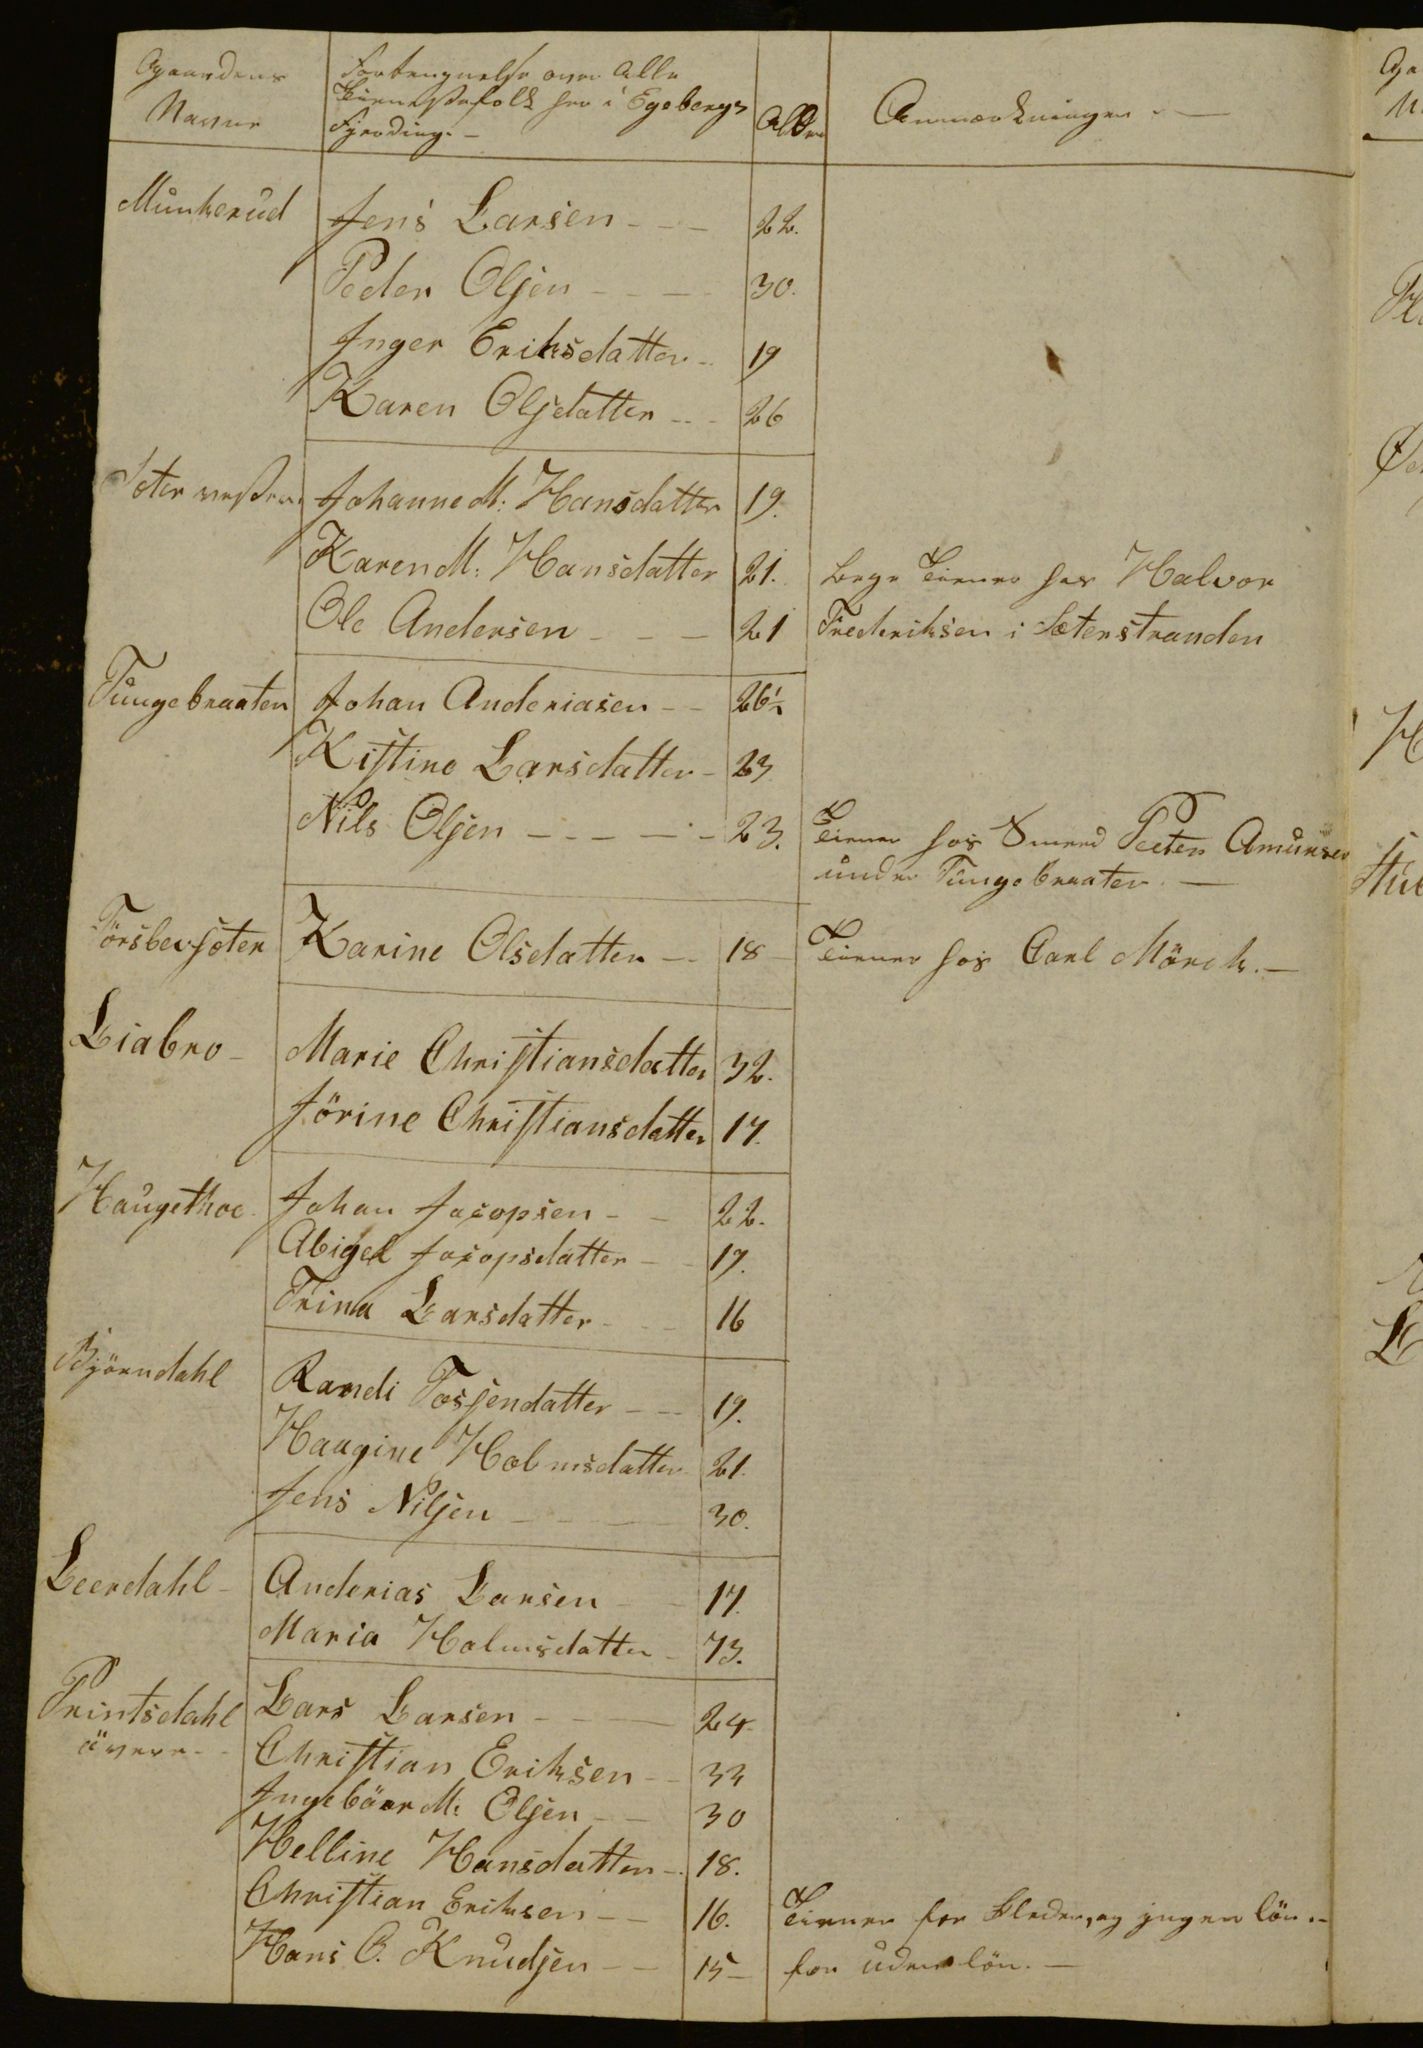 Gaardens
Navne
Fortegnelse over Alle
Tienestefolk her i Egebergs
Fjerding. -
Alder
Anmærkninger. -
Munkerud
Jens Larsen - - - 22.
Peder Olsen - - - 30.
Inger Eriksdatter - 19
Karen Olsdatter - - 26
Sæter vestre
Johanne M: Hansdatter 19.
Karen M: Hansdatter 21. begge Tiener hos Halvor
Ole Andersen - - - 21 Frederiksen i Sæterstranden
Tungebraaten
Johan Anderiasen - - 26½
Kistine Larsdatter - 23
Nils Olsen - - - - - 23. Tiener hos Smed Peeter Amunsen
under Tungebraaten. -
Karine Olsdatter - 18 - Tiener hos Carl Mörch. -
Liabro -
Marie Christiansdatter 32.
Jörine Christiansdatter 17.
Haugethoe.
Johan Jacopsen - - 22.
Abigel Jacopsdatter - - 17.
Trina Larsdatter - - - 16
Björndahl
Randi Tosjendatter - - 19.
Haagine Holmsdatter 21.
Jens Nilsen - - - - 30.
Leerdahl -
Anderias Larsen - - 17.
Maria Holmsdatter - 73.
Printsdahl
övere -
Lars Larsen - - - 24
Christian Eriksen - - 33
Ingebörr M: Olsen - - 30
Helline Hansdatter - 18.
Christian Eriksen - - 16. Tiener for Kleder, og ingen lön. -
Hans O. Knudsen - - 15 - for uden lön. -